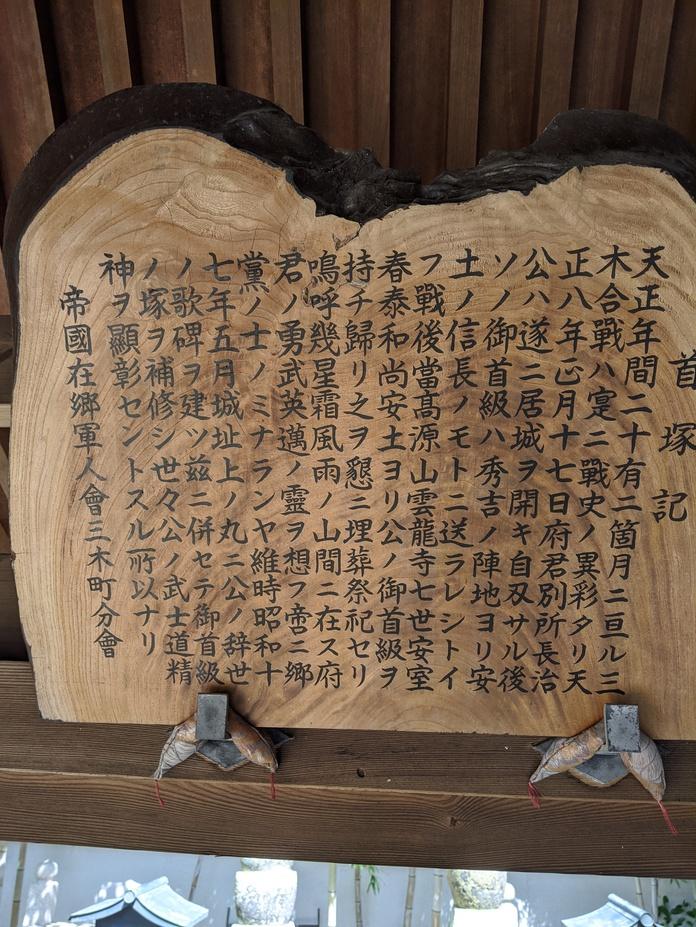 首塚記
天正年間二十有二箇月ニ亘ル三
木合戰ハ寔ニ戰史ノ異彩タリ天
正八年正月十七日府君別所長治
公ハ遂ニ居城ヲ開キ自刃サル後
ソノ御首級ハ秀吉ノ陣地ヨリ安
土ノ信長ノモトニ送ラレシトイ
フ戰後當髙源山雲龍寺七世安室
春泰和尚安土ヨリ公ノ御首級ヲ
持チ歸リ之ヲ懇ニ埋葬祭祀セリ
鳴呼幾星霜風雨ノ山間ニ在ス府
君ノ勇武英邁ノ靈ヲ想フ啻ニ郷
黨ノ士ノミナランヤ維時昭和十
七年五月城址上ノ丸ニ公ノ辞世
ノ歌碑ヲ建ツ茲ニ併セテ御首級
ノ塚ヲ補修シ世々公ノ武士道精
神ヲ顯彰セントスル所以ナリ
帝國在郷軍人會三木町分會